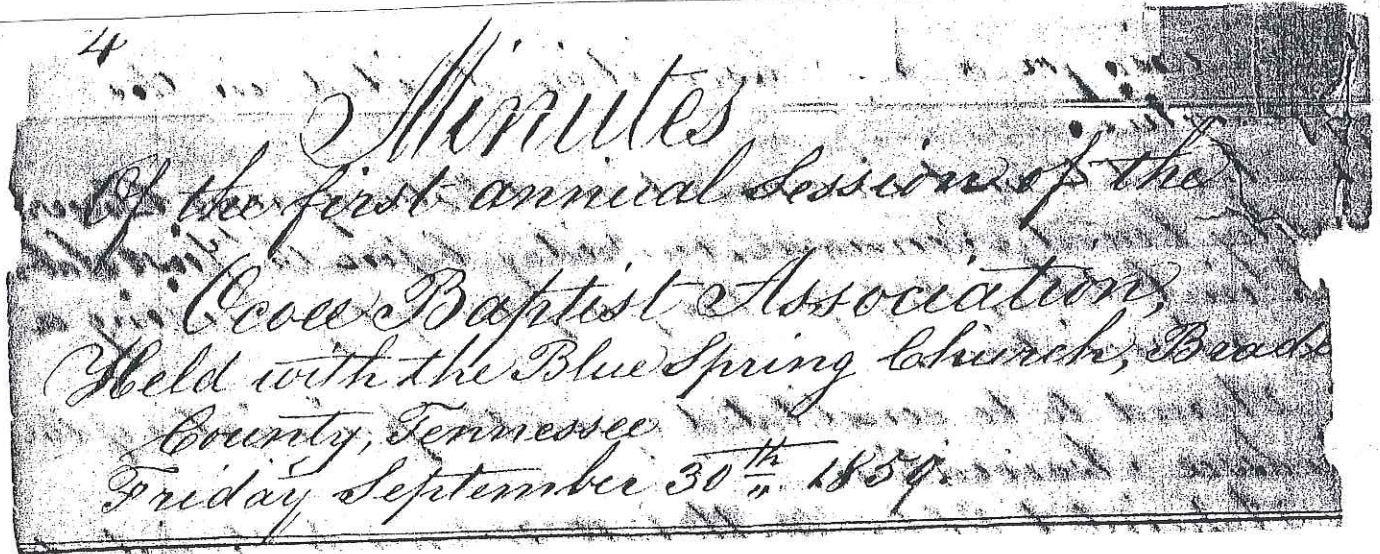 4
Minutes
Of the first annual Session of the
Ocoee Baptist Association,
Held with the Blue Spring Church, Brad
County, Tennessee
Friday September 30th 1859.